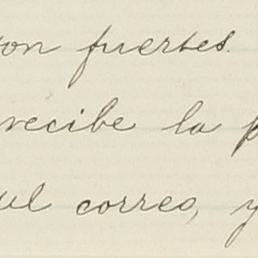 on fuertes.
recibe la p
ul correo, y